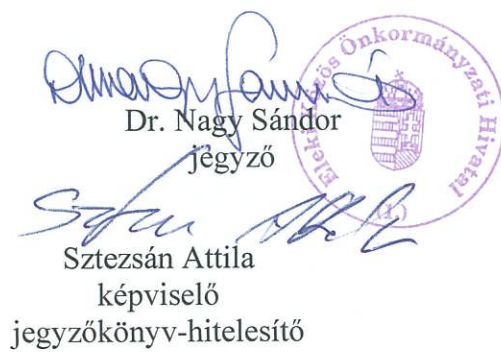 Dr. Nagy Sándor
jegyző
Eleki Közös Önkormányzati Hivatal
(1.)
Sztezsán Attila
képviselő
jegyzőkönyv-hitelesítő